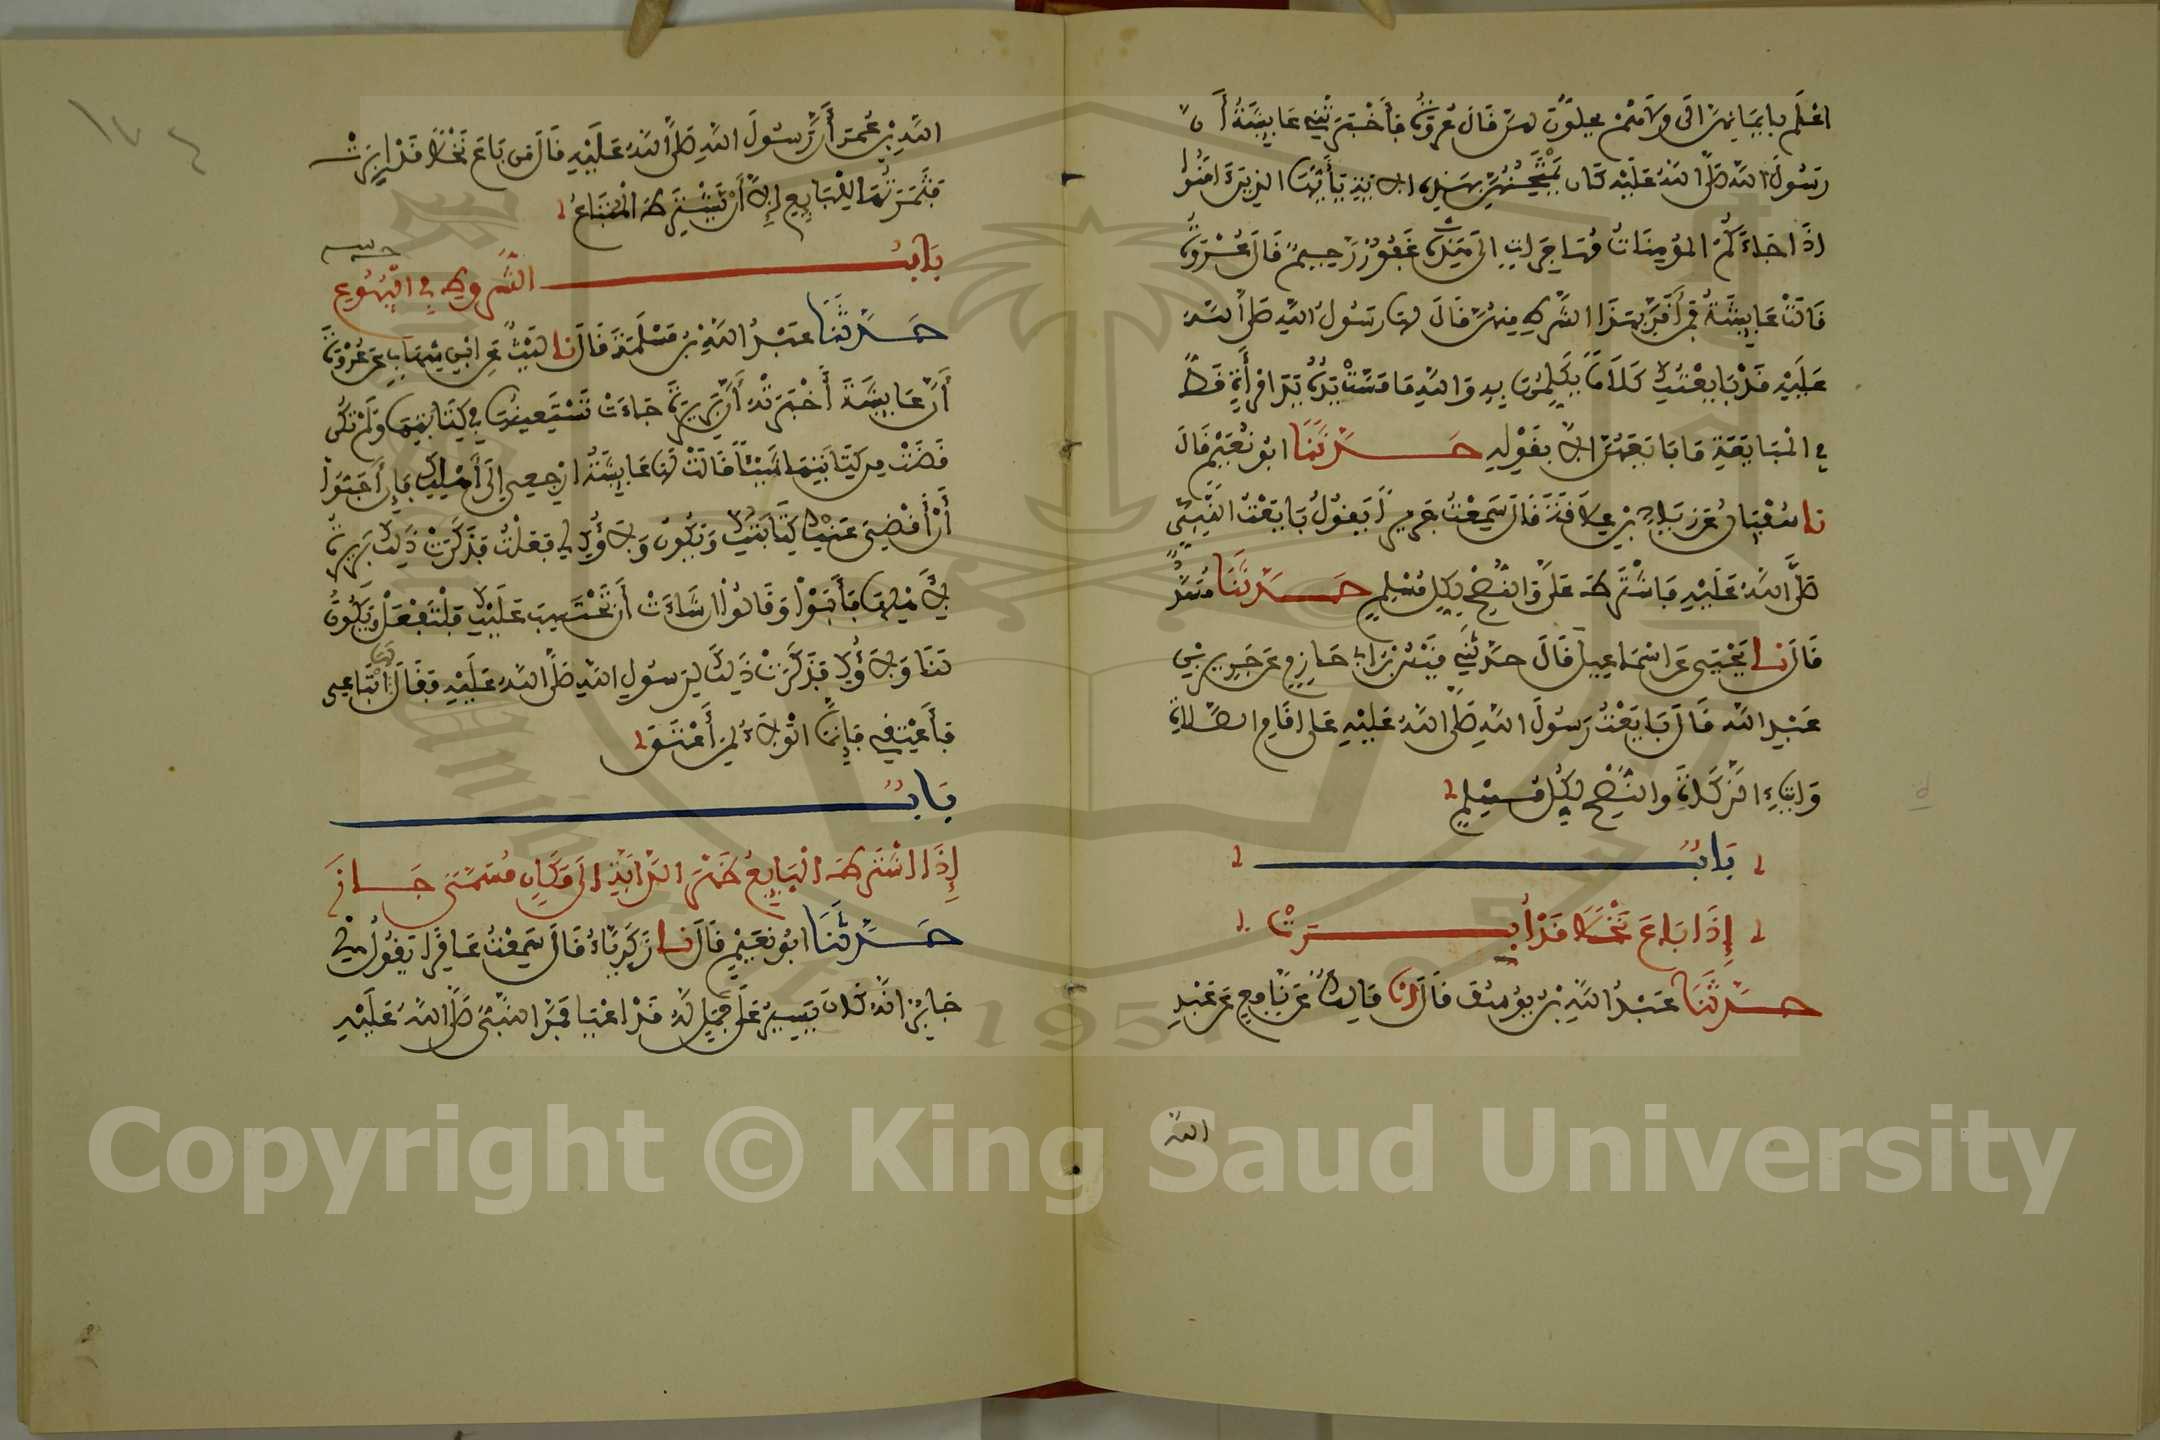 اعْلَم بإيمَانِهِنَّ إلى ولا هُمْ يحلون لهن قَالَ عُرْوَةُ فَأَخْبَرَتْنِي عَايِشَةُ أَنَّ
رَسُولَ اللَّهِ صَلَّى اللهُ عَلَيْهِ كَانَ يَمْتَحِنُهُنَّ بِهَذِهِ الايَةِ يَأَيُّهَا الذِينَ ءَامَنُوا
إِذَا جَاءَكُمُ المُومِنَاتُ مُهَاجِرَاتٍ إلى غَفُورٌ رَحِيمٌ قَالَ عُرْوَةُ
قَالَتْ عَايِشَةُ فَمَنْ أَقَرَّ بهَذَا الشَّرْطِ مِنهُنَّ قَالَ لَهَا رَسُولُ اللَّهِ صَلَّى اللهُ
عَلَيْهِ قَدْ بَايَعْتُكِ كَلَاماً يُكَلِّمُهَا بِهِ وَاللهِ مَا مَسَّتْ يَدُهُ يَدَ امْرَأَةٍ قَطُّ
فِي الْمُبَايَعَةِ مَا بَايَعَهُنَّ إلاَّ بِقَوْلِهِ حَدَّثَنَا ابُو نُعَيْمٍ قَالَ
نا سُفْيَانُ عَنْ زِيَادِ بْنِ عِلاَقَةَ قَالَ سَمِعْتُ جَرِيراً يَقُولُ بَايَعْتُ النَّبِيَّ
صَلَّى اللَّهُ عَلَيْهِ فَاشْتَرَطَ عَلَيَّ وَالنُّصْحِ لِكُلِّ مُسْلِمٍ حَدَّثَنَا مُسَدَّدٌ
قَالَ نا يَحْيَى عَنِ اسْمَاعِيلَ قَالَ حَدَّثَنِي قَيْسُ بْنُ أَبِي حَازِمٍ عَنْ جَرِيرِ بْنِ
عَبْدِ اللَّهِ قَالَ بَايَعْتُ رَسُولَ اللَّهِ صَلَّى اللَّهُ عَلَيْهِ عَلَى إِقَامِ الصَّلاَةِ
وَإِيتَاءِ الزَّكَاةِ والنُّصْحِ لِكُلِّ مُسْلِمٍ
بَابُ
إِذَا بَاعَ نَخْلاً قَدْ أُبِّرَتْ
حَدَّثَنَا عَبْدُ اللَّهِ بْنُ يُوسُفَ قَالَ أنا مَالِكٌ عَنْ نَافِعٍ عَنْ عَبْدِ
اللَّه
١٧٤
اللَّهِ بْنِ عُمَرَ أَنَّ رَسُولَ اللَّهِ صَلَّى اللهُ عَلَيْهِ قَالَ مَن بَاعَ نَخْلاً قَدْ أُبِّرَتْ
فَثَمَرَتُهَا لِلْبَايِعِ إِلاَّ أَنْ يَشْتَرِطَ الْمُبْتَاعُ
بَابُ الشُّرُوطِ فِي الْبُيُوعِ
حَدَّثَنَا عَبْدُ اللَّهِ بْنُ مَسْلَمَةَ قَالَ نا لَيْثٌ عَنِ ابْنِ شِهَابٍ عَنْ عُرْوَةَ
أَنَّ عَايِشَةَ أَخْبَرَتْهُ أَنَّ بَرِيرَةَ جَاءَتْ تَسْتَعِينُهَا فِي كِتَابَتِهَا وَلَمْ تَكُنْ
قَضَتْ مِن كِتَابَتِهَا شَيْئاً قَالَتْ لَهَا عَايِشَةُ ارْجِعِي إِلَى أَهْلِكِ فَإِنْ أَحَبُّوا
أَنْ أَقْضِيَ عَنْكِ كِتَابَتَكِ وَيَكُونَ وَلاَؤُكِ لِي فَعَلْتُ فَذَكَرَتْ ذَلِكَ بَرِيرَةُ
لأَهْلِهَا فَأَبَوْا وَقَالُوا إن شَاءَتْ أَنْ تَحْتَسِبَ عَلَيْكِ فَلْتَفْعَلْ وَيَكُونَ
لَنَا وَلاَؤُكِ فَذَكَرَتْ ذَلِكَ لِرَسُولِ اللَّهِ صَلَّى اللهُ عَلَيْهِ فَقَالَ لَهَا ابْتَاعِي
فَأَعْتِقِي فَإِنَّمَا الْوَلاَءُ لِمَنْ أَعْتَقَ
بَابُ
إِذَا اشْتَرَطَ الْبَايِعُ ظَهْرَ الدَّابَّةِ إلى مَكَانٍ مُسَمًّى جَازَ
حَدَّثَنَا ابُو نُعَيْمٍ قَالَ نا زَكَرِيَّاءُ قَالَ سَمِعْتُ عَامِراً يَقُولُ حدثني
جَابِرٌ انَّهُ كَانَ يَسِيرُ عَلَى جَمَلٍ لَهُ قَدْ اعْيَا فَمَرَّ النَّبِيُّ صَلَّى اللَّهُ عَلَيْهِ
Copyright © King Saud University
1957